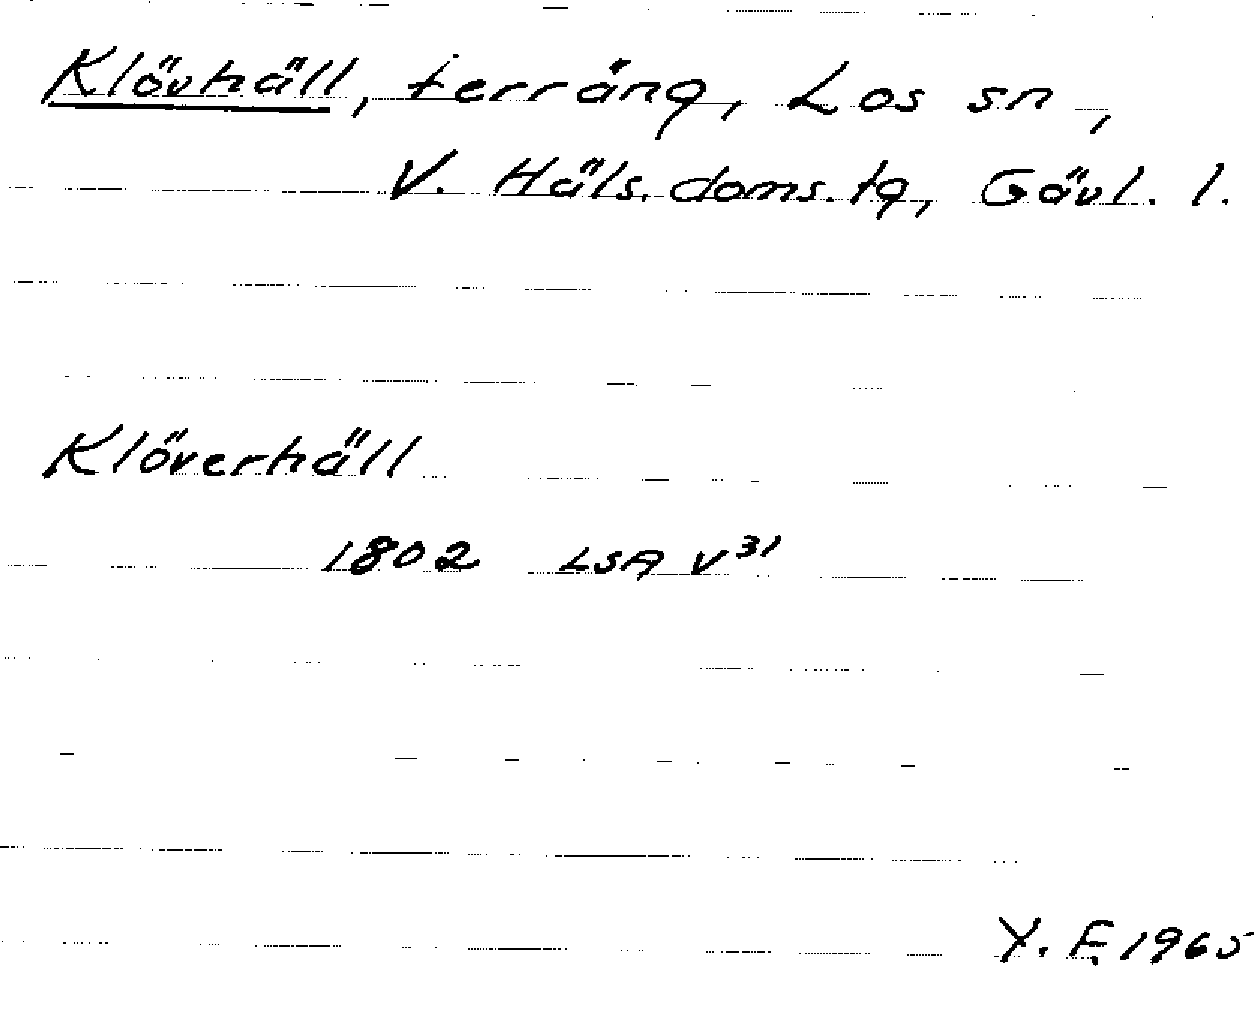 Klövhäll, terräng, Los sn,
V. Häls. doms. tg, Gävl. l.
Klöverhäll
1802 LSA V³¹
Y. F. 1965